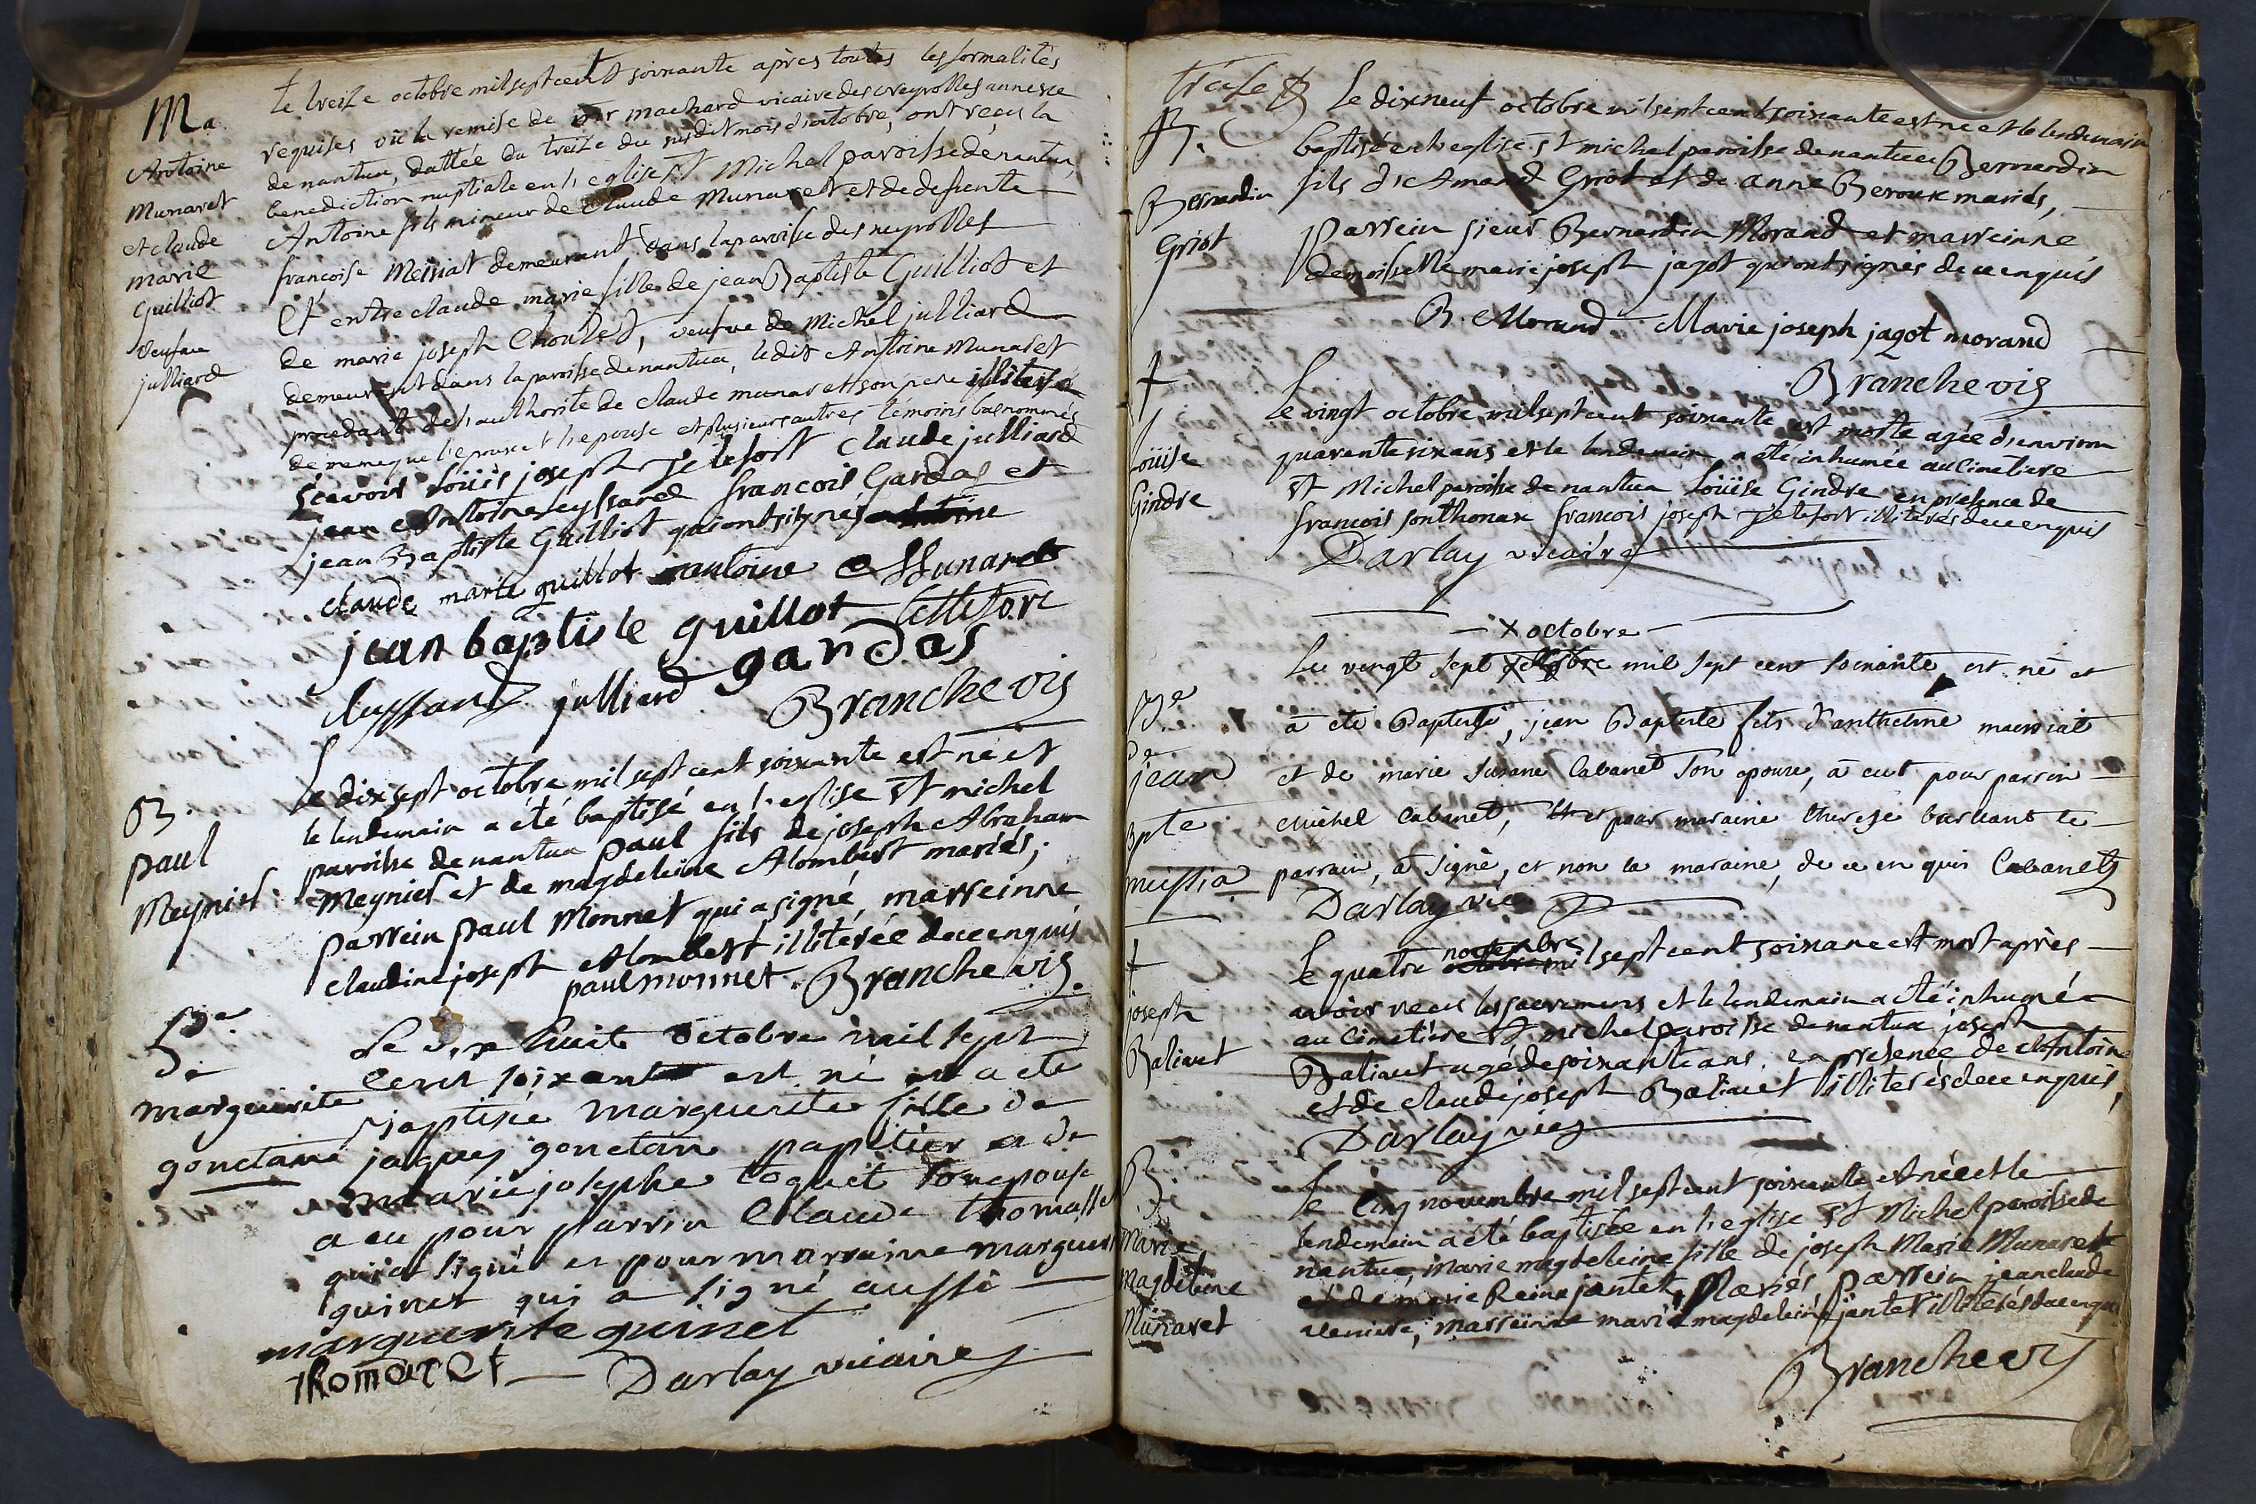 Ma
Antoine
Munaret
et claude
marie
Guilliot
veufve
julliard
Le treize octobre mil sept cent soixante après toutes les formalités
requises vû la remise de Mr machard vicaire des neyrolles annexe
de nantua, dattée du treize du susdit mois d'octobre, ont reçu la
benediction nuptiale en l'eglise St Michel paroisse de nantua,
Antoine fils mineur de Claude Munaret et de defunte
francoise Meiniat demeurant dans la paroisse des neyrolles
Et entre claude marie fille de jean Baptiste Guilliot et
de marie joseph Choulet, veufve de Michel julliard
demeurent dans la paroisse de nantua, ledit Antoine Munaret
procedant de l'authorité de Claude munaret son pere
de meme que l'epoux et l'epouse et plusieurs autres témoins bas nommés
sçavoir Loüis joseph Jelefort Claude julliard
jean Antoine Leyssard francois Gardas et
jean Baptiste Guilliot qui ont signés
claude marie guillot antoine Munaret
jean baptiste guillot
Leyssard julliard gardas
Branche vic
B.
paul
Meynier
Le dix sept octobre mil sept cent soixante est né et
le lendemain a été baptisé en l'eglise St michel
paroisse de nantua paul fils de joseph Abraham
Meynier et de magdeleine Alombert mariés;
parrein paul Monnet qui a signé, marreinne
claudine joseph Alombert illiterée de ce enquis
paul monnet. Branche vic.
Be
de
marguerite
gonetane
Le dix huit octobre mil sept
cent soixante est né et a ete
Baptisée marguerite fille de
jaques gonetan papetier et de
marie josephe coquet son epouse
a eu pour parrin Claude thomasse
qui a signé et pour marraine marguer
guinet qui a signé aussi
marguerite guinet
thomaset Darlay vicaire
B.
Bernardin
Griot
Le dixneuf octobre mil sept cent soixante est né et le lendemain
baptisé en l'eglise St michel paroisse de nantua Bernardin
fils d'Amand Griot et de anne Beroux mariés,
parrein sieur Bernardin Morand et marreinne
demoiselle marie joseph jagot qui ont signés de ce enquis
B. Morand Marie joseph jagot morand
Branche vic
†
Loüise
Gindre
Le vingt octobre mil sept cent soixante est morte agée d'environ
quarante six ans et le lendemain a été inhumée au Cimetiere
St Michel paroisse de nantua Loüise Gindre en présence de
francois sonthonax francois joseph Jelefort illiterés de ce enquis
Darlay vicaire
x octobre
Le vingt sept mil sept cent soixante, est né et
Be
de
jean
bpte
meissia
à eté Baptisé, jean Baptiste fils d'anthelme
et de marie Susane Cabanet son epouse, à eut pour parrein
michel Cabanet, et pour maraine therese
parrain, à signé, et non la maraine, de ce en quis Cabanet
Darlay vic
†
joseph
Balivet
Le quatre novembre mil sept cent soixante est mort après
avoir recu les sacremens et le lendemain a été inhumé
au Cimetiere St michel paroisse de nantua joseph
Balivet agé de soixante ans en présence de Antoine
et de claude joseph Balivet illiterés de ce enquis,
Darlay vic
B.
de
Marie
Magdeleine
Munaret
Le Cinq novembre mil sept cent soixante est née et le
lendemain a été baptisée en l'eglise St Michel paroisse de
nantua, Marie magdeleine fille de joseph Marie Munaret
et de marie Reine jantet, Mariés parrein jean claude
marreinne marie magdeleine jantet illiterés de ce enquis
Branche vic